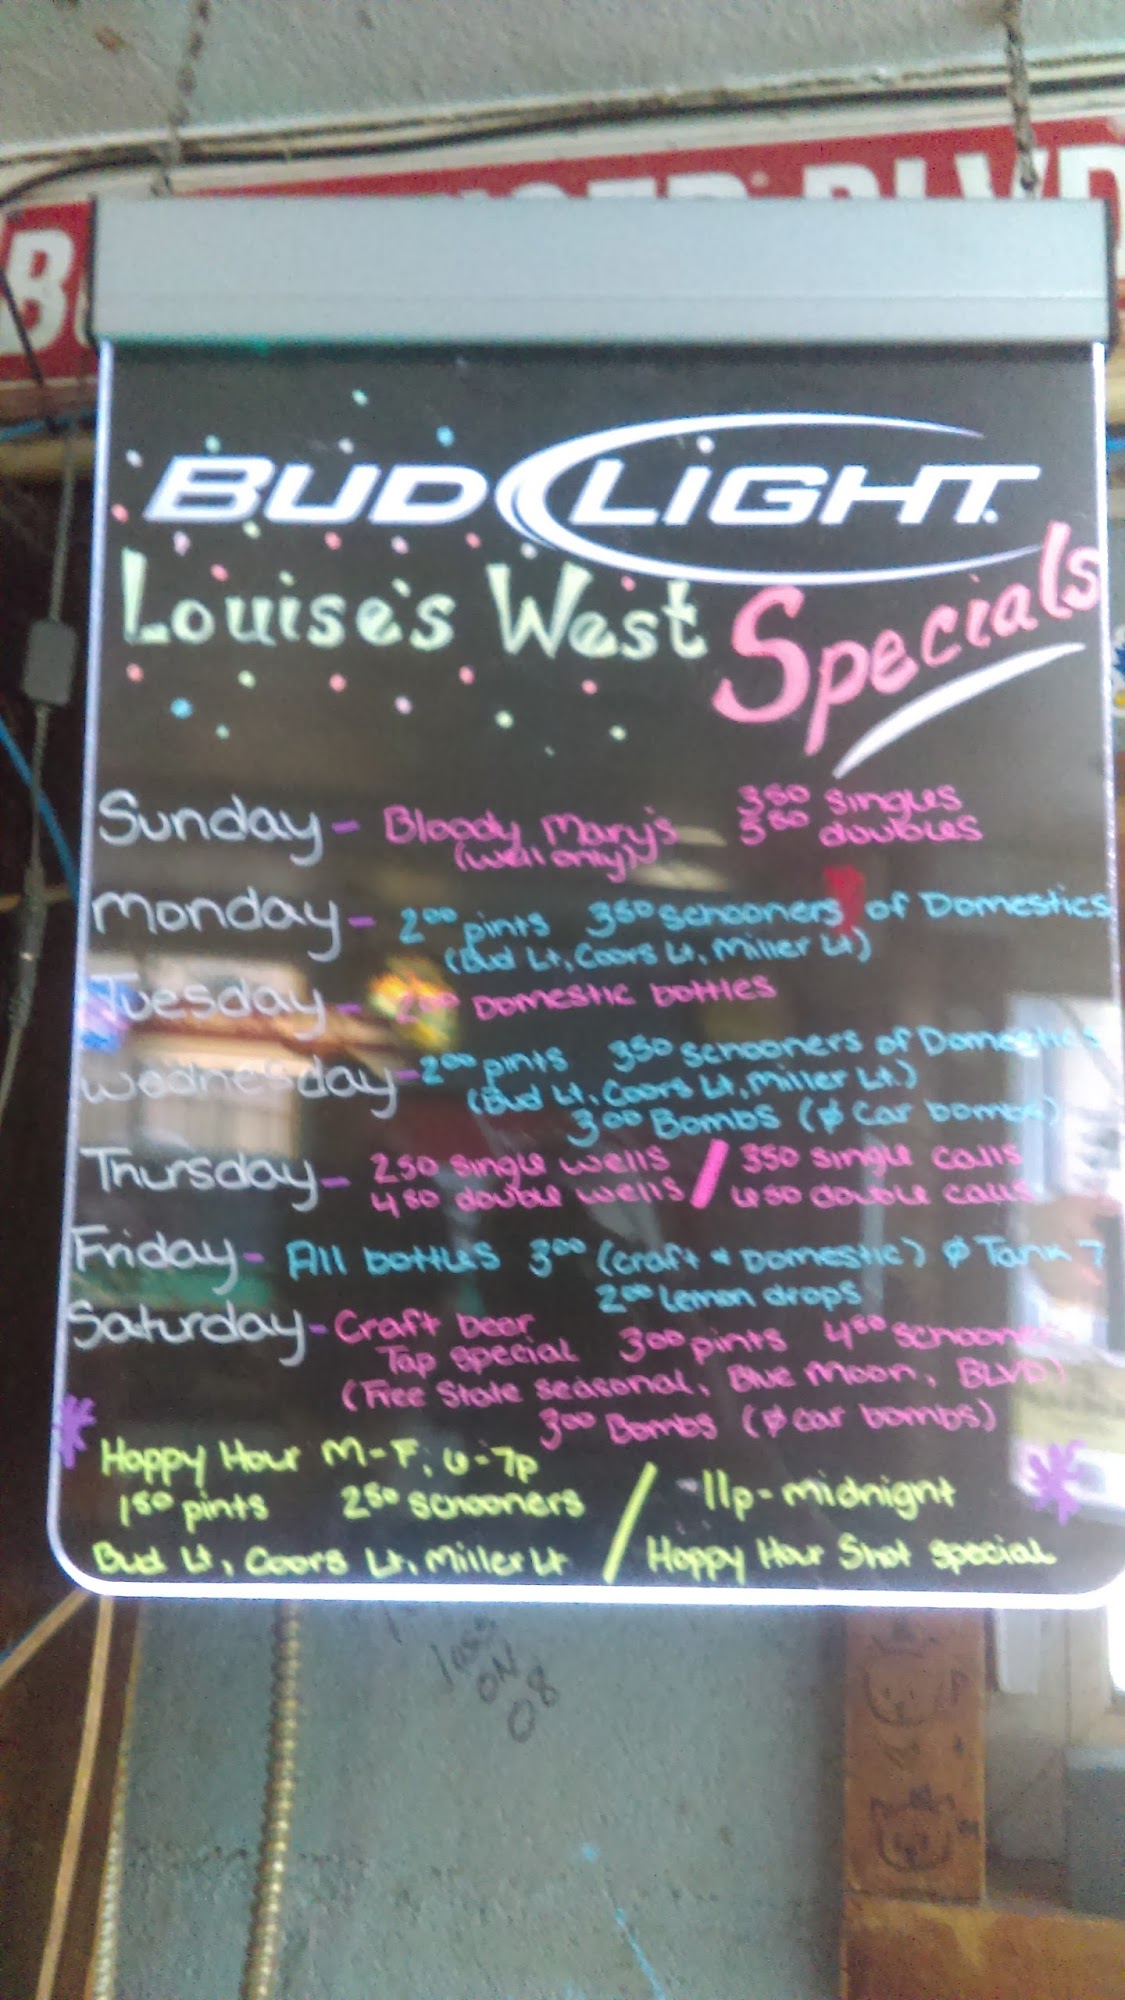 BLVD
BUD LIGHT
Louise's West Specials
Sunday - Bloody Mary's 350 singles
(well only) 550 doubles
Monday - 200 pints 350 schooners of Domestics
(Bud Lt, Coors Lt, Miller Lt)
Tuesday - 200 Domestic bottles
Wednesday - 200 pints 350 schooners of Domestics
(Bud Lt, Coors Lt, Miller Lt.)
300 Bombs (ø car bombs)
Thursday - 250 single wells / 350 single calls
450 double wells / 650 double calls
Friday - All bottles 300 (craft & Domestic) ø Tank 7
200 Lemon drops
Saturday - Craft beer
Tap special 300 pints 450 schooners
(Free State seasonal, Blue Moon, BLVD)
300 Bombs (ø car bombs)
Happy Hour M-F, 6-7p
150 pints 250 schooners / -11p-midnight
Bud Lt, Coors Lt, Miller Lt / Happy Hour Shot special
ON
08